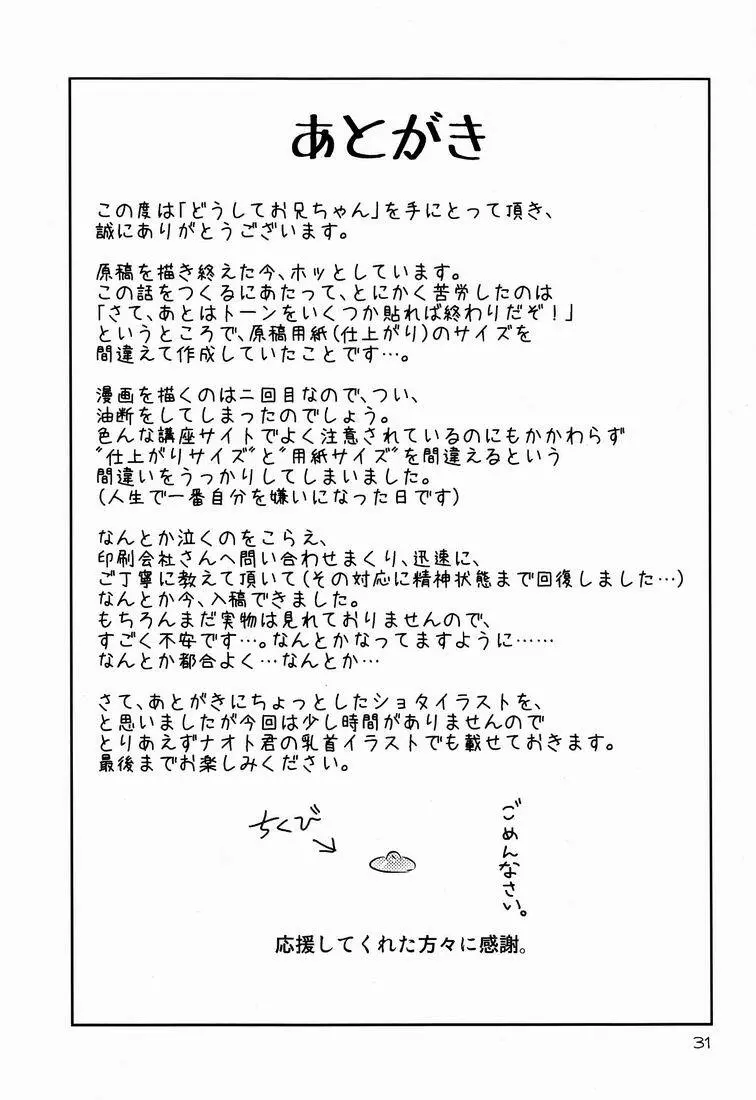 あとがき
この度は「どうしてお兄ちゃん」を手にとって頂き、
誠にありがとうございます。
原稿を描き終えた今、ホッとしています。
この話をつくるにあたって、とにかく苦労したのは
「さて、あとはトーンをいくつか貼れば終わりだぞ！」
というところで、原稿用紙(仕上がり)のサイズを
間違えて作成していたことです…。
漫画を描くのは二回目なので、つい、
油断をしてしまったのでしょう。
色んな講座サイトでよく注意されているのにもかかわらず
"仕上がりサイズ"と"用紙サイズ"を間違えるという
間違いをうっかりしてしまいました。
(人生で一番自分を嫌いになった日です)
なんとか泣くのをこらえ、
印刷会社さんへ問い合わせまくり、迅速に、
ご丁寧に教えて頂いて(その対応に精神状態まで回復しました…)
なんとか今、入稿できました。
もちろんまだ実物は見れておりませんので、
すごく不安です…。なんとかなってますように……
なんとか都合よく…なんとか…
さて、あとがきにちょっとしたショタイラストを、
と思いましたが今回は少し時間がありませんので
とりあえずナオト君の乳首イラストでも載せておきます。
最後までお楽しみください。
ちくび
ごめんなさい。
応援してくれた方々に感謝。
31